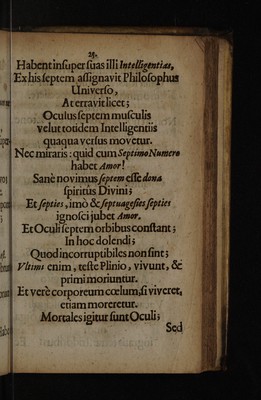 25.
Habent insuper suas illi Intelligentias,
Ex his septem assignavit Philosophus
Universo,
At erravit licet;
Oculus septem musculis
velut totidem Intelligentiis
quaqua versus movetur.
Nec miraris: quid cum Septimo Numero
habet Amor!
Sanè novimus septem esse dona
spiritûs Divini;
Et septies, imò & septuagesies septies
ignosci jubet Amor.
Et Oculi septem orbibus constant;
In hoc dolendi;
Quod incorruptibiles non sint;
Ultimi enim, teste Plinio, vivunt, &
primi moriuntur.
Et verè corporeum cœlum, si viveret,
etiam moreretur.
Mortales igitur sunt Oculi;
Sed